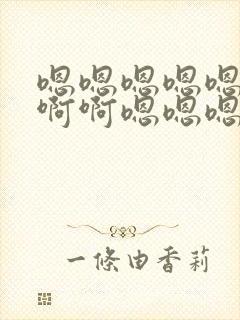 嗯嗯嗯嗯嗯
啊啊嗯嗯嗯
一條由香莉